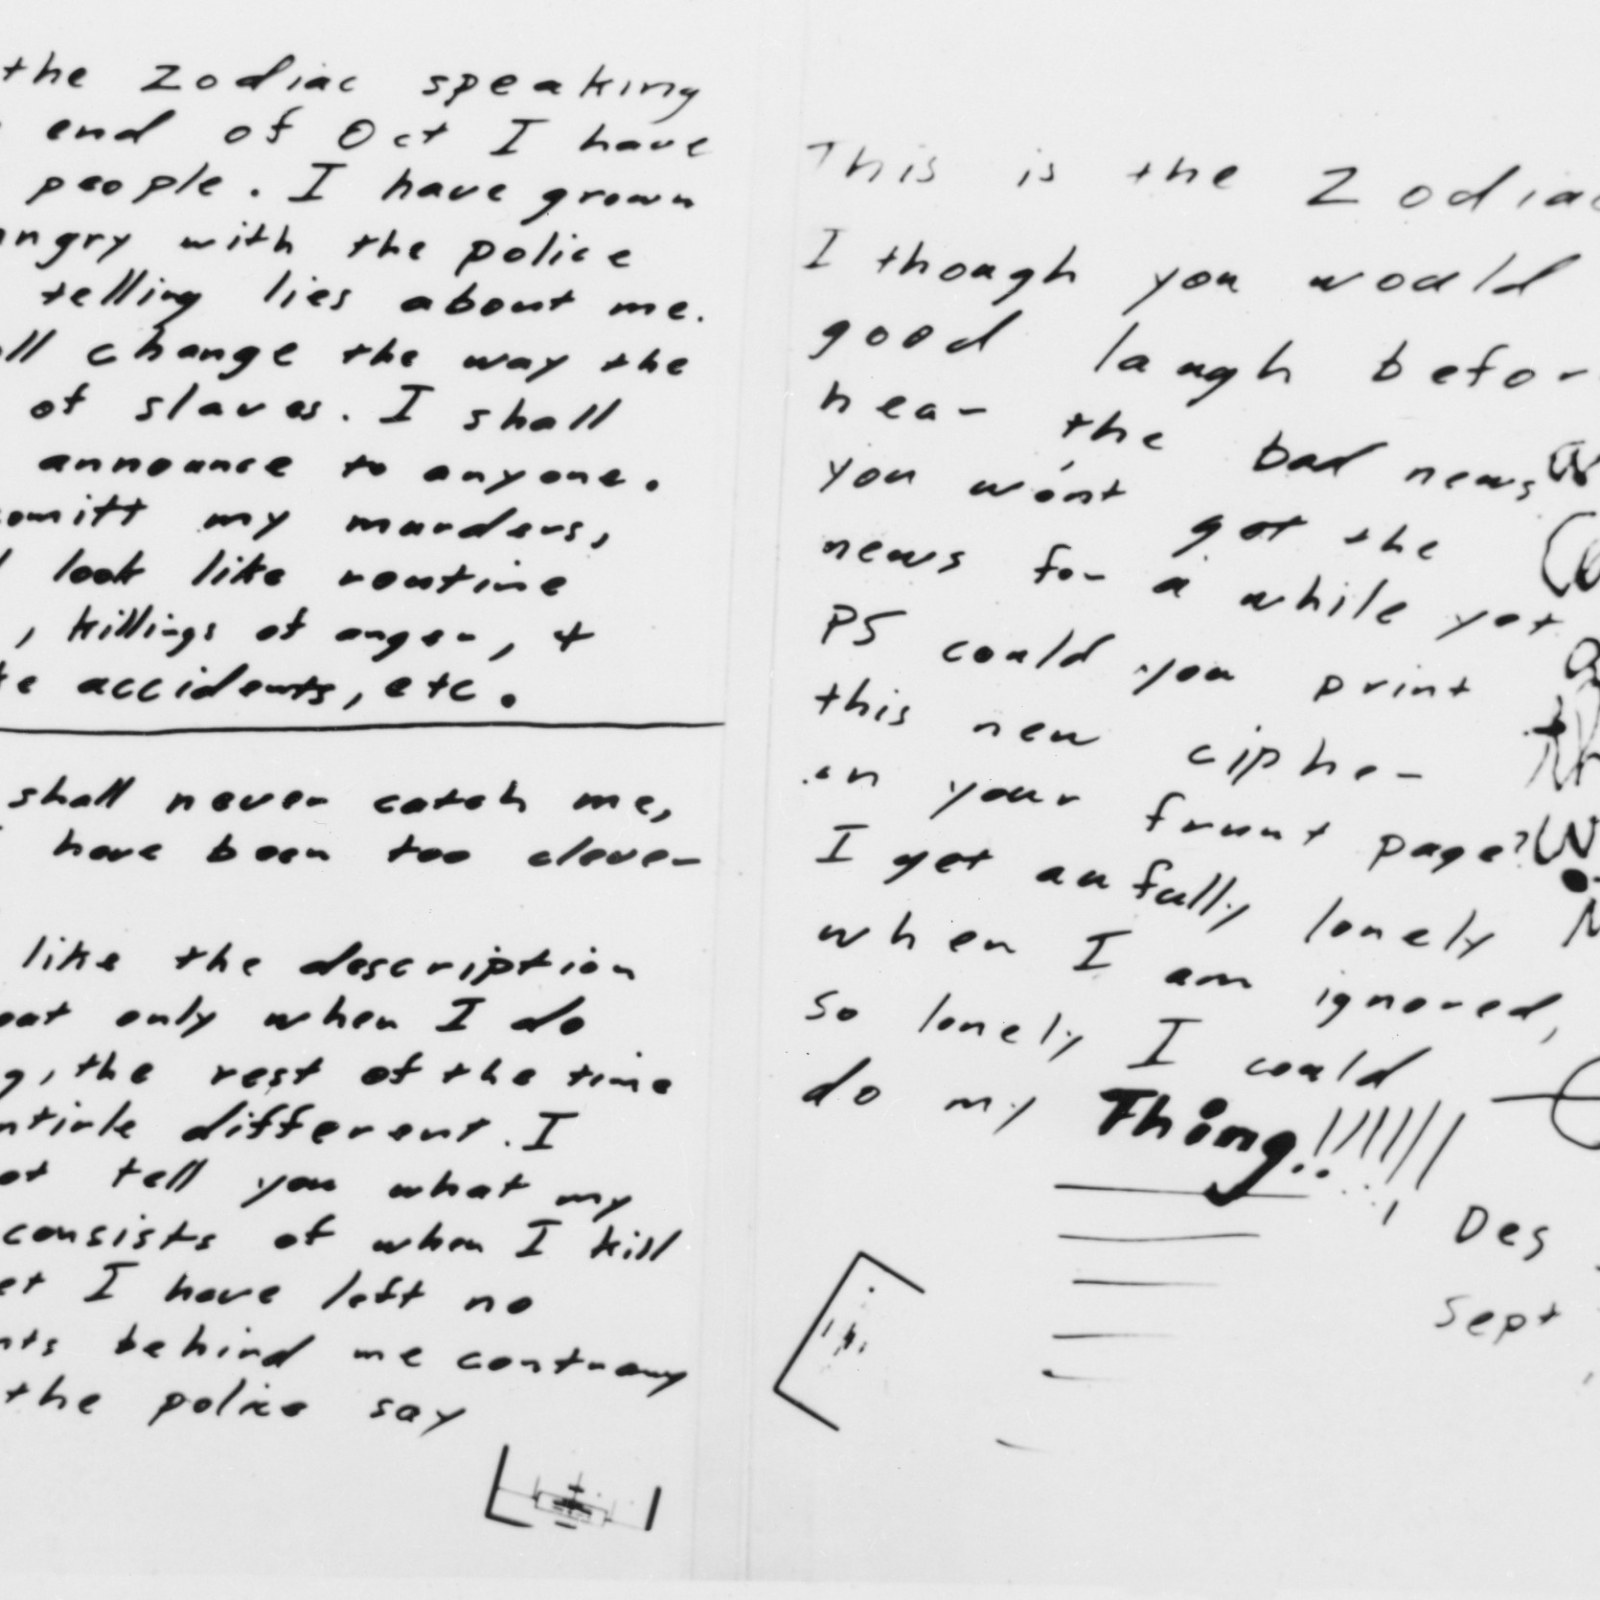 the Zodiac speaking
end of Oct I have
people. I have grown
angry with the police
telling lies about me.
all change the way the
of slaves. I shall
announce to anyone.
comitt my murders,
look like routine
, killings of anger, +
accidents, etc.
shall never catch me,
have been too clever
like the description
only when I do
, the rest of the time
entirle different. I
tell you what my
consists of when I kill
I have left no
behind me contrary
the police say
This is the Zodiac
I though you would
good laugh before
hear the bad news
you won't get the
news for a while yet
PS could you print
this new cipher
on your frunt page?
I get aufully lonely
when I am ignored,
so lonely I could
do my Thing!!!!!!
Des
Sept